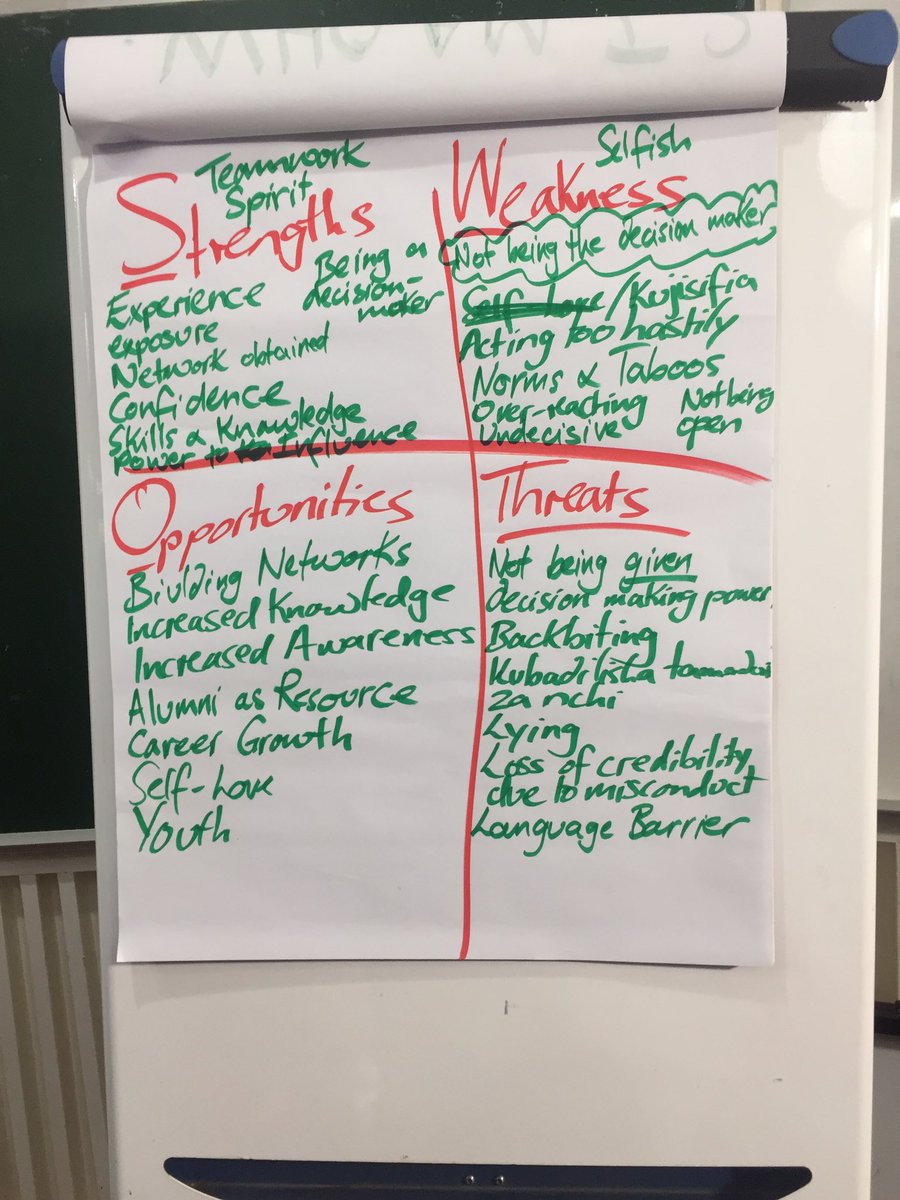 WHO AM I ?
Teamwork
Spirit
Strengths
Being a
decision-
maker
Experience
exposure
Network obtained
Confidence
Skills & Knowledge
Power to Influence
Selfish
Weakness
Not being the decision maker
Self-love /Kujisifia
Acting too hastily
Norms & Taboos
Over-reaching
Undecisive
Not being
open
Opportunities
Biulding Networks
Increased Knowledge
Increased Awareness
Alumni as Resource
Career Growth
Self-Love
Youth
Threats
Not being given
Decision making power
Backbiting
Kubadilisha
za nchi
Lying
Loss of credibility
due to misconduct
Language Barrier